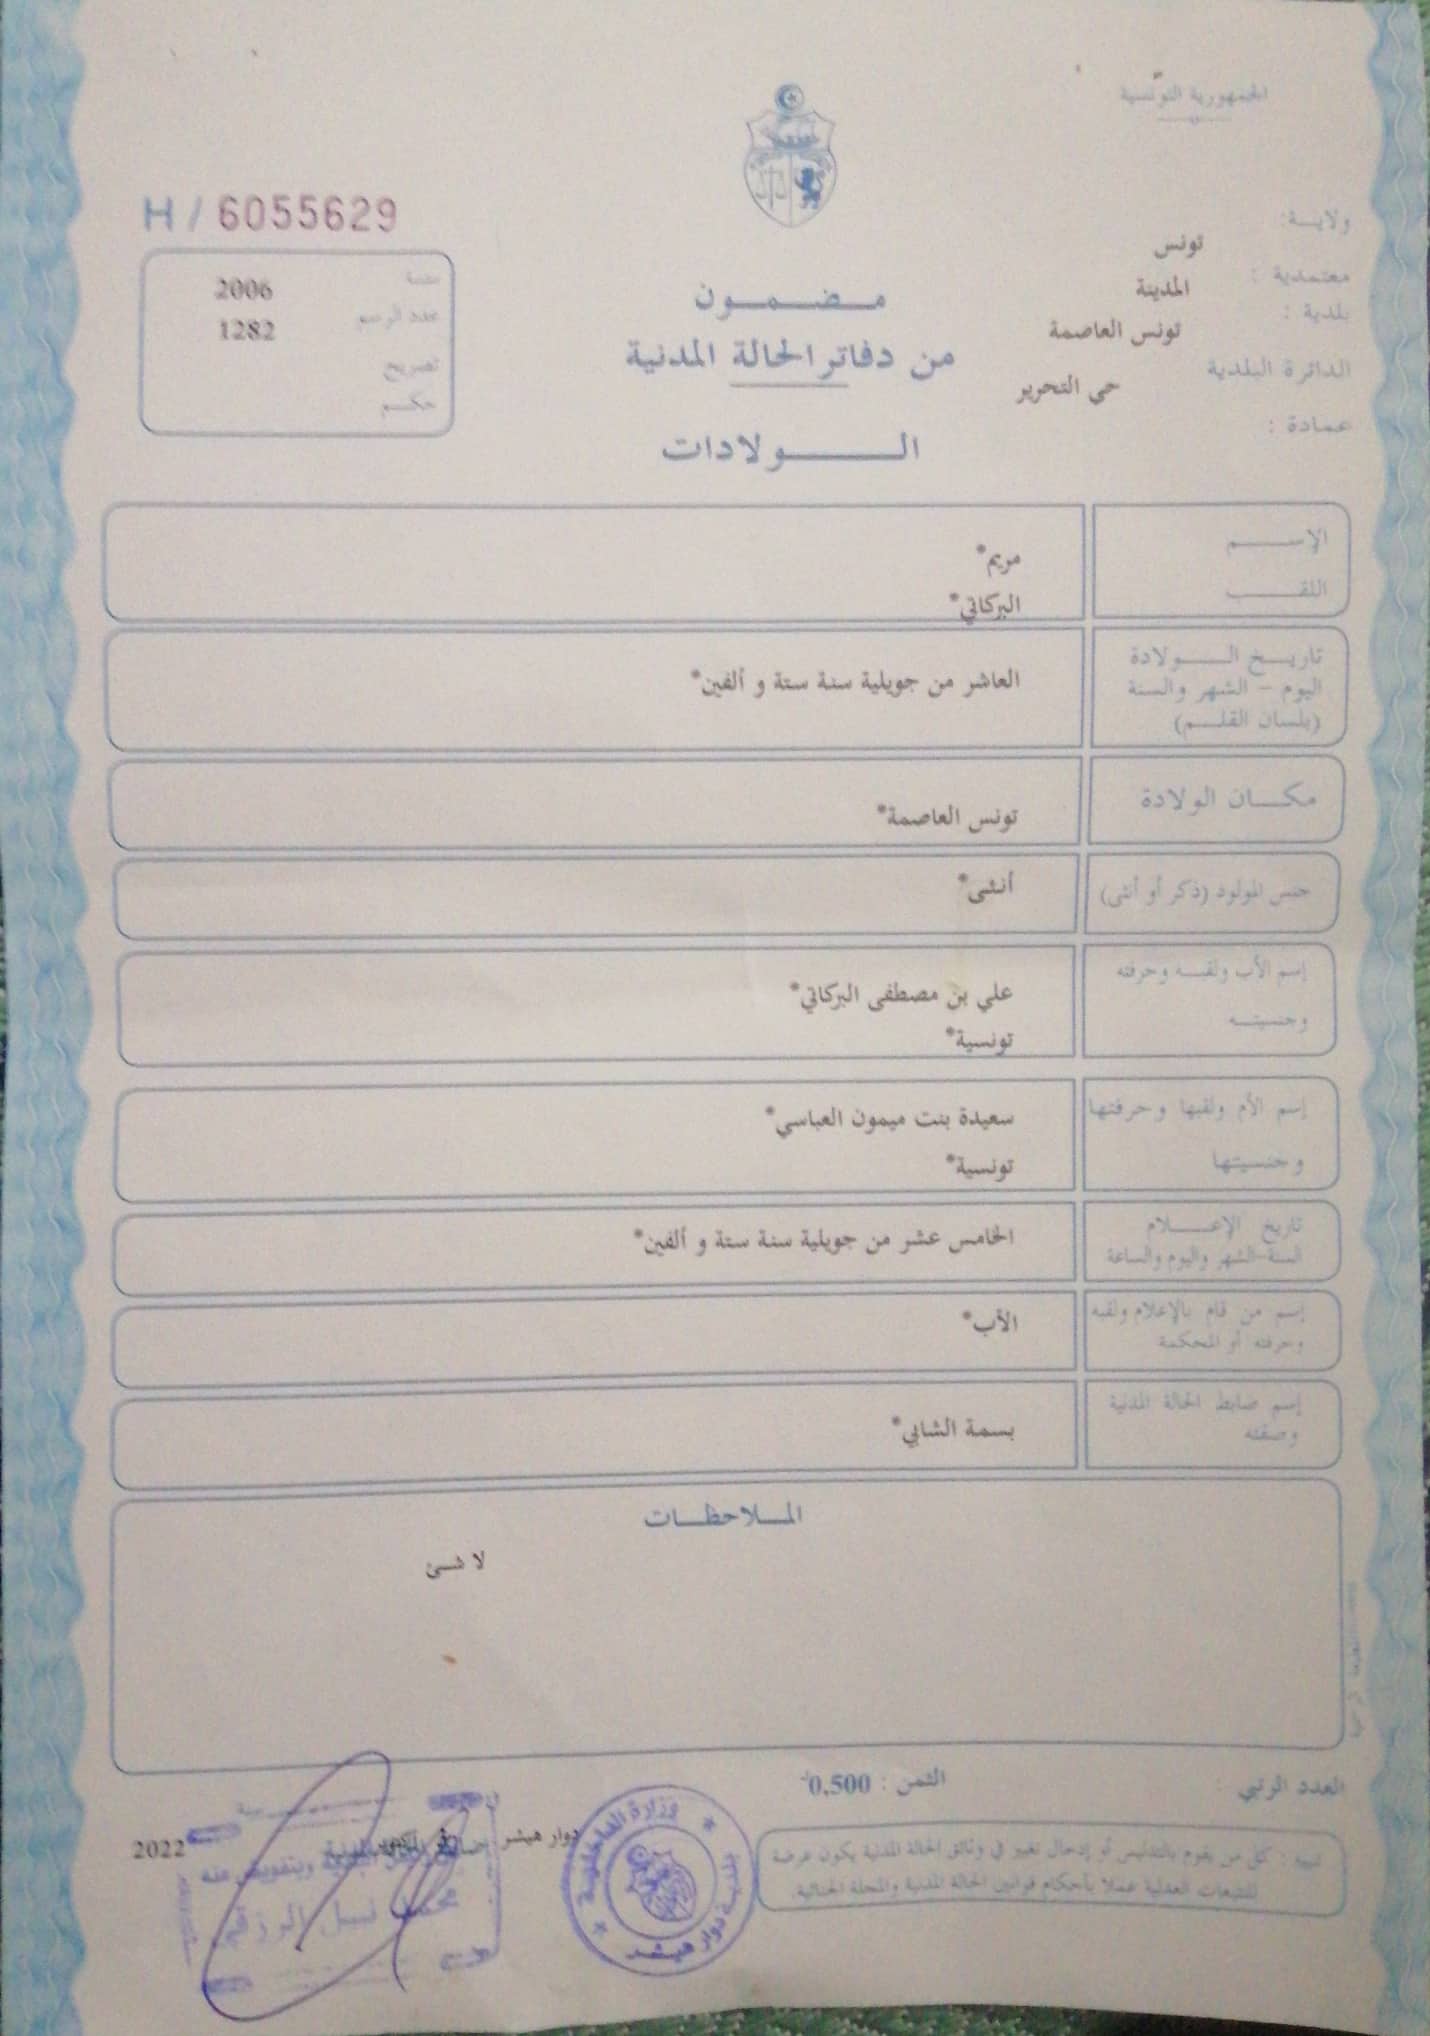 الجمهورية التونسية
H / 6055629
ولايــة:
تونس
معتمدية :
المدينة
بلدية :
تونس العاصمة
الدائرة البلدية
حي التحرير
عمادة :
سنة 2006
عدد الرسم 1282
تصريح
حكــم
مـضـمـون
من دفاتر الحالة المدنية
الـــولادات
الإســـم
مريم*
اللقـــب
البركاتي*
تاريــخ الــولادة
اليوم – الشهر والسنة
(بلسان القلــم)
العاشر من جويلية سنة ستة و ألفين*
مكــان الولادة
تونس العاصمة*
جنس المولود (ذكر أو أنثى)
أنثى*
إسم الأب ولقبــه وحرفته
علي بن مصطفى البركاتي*
وجنسيتــه
تونسية*
إسم الأم ولقبها وحرفتها
سعيدة بنت ميمون العباسي*
وجنسيتها
تونسية*
تاريخ الإعـــلام
السنة-الشهر واليوم والساعة
الخامس عشر من جويلية سنة ستة و ألفين*
إسم من قام بالإعلام ولقبه
وحرفته أو المحكمة
الأب*
إسم ضابط الحالة المدنية
وصفته
بسمة الشابي*
المــلاحظــات
لا شئ
العدد الرتبي :
الثمن : 0,500
تنبيه : كل من يقوم بالتدليس أو إدخال تغيير في وثائق الحالة المدنية يكون عرضة
للتتبعات العدلية عملا بأحكام قوانين الحالة المدنية والمجلة الجنائية.
وزارة الداخلية
دوار هيشر
دوار هيشر في
2022
ضابط الحالة المدنية
وبتفويض منه
نبيل